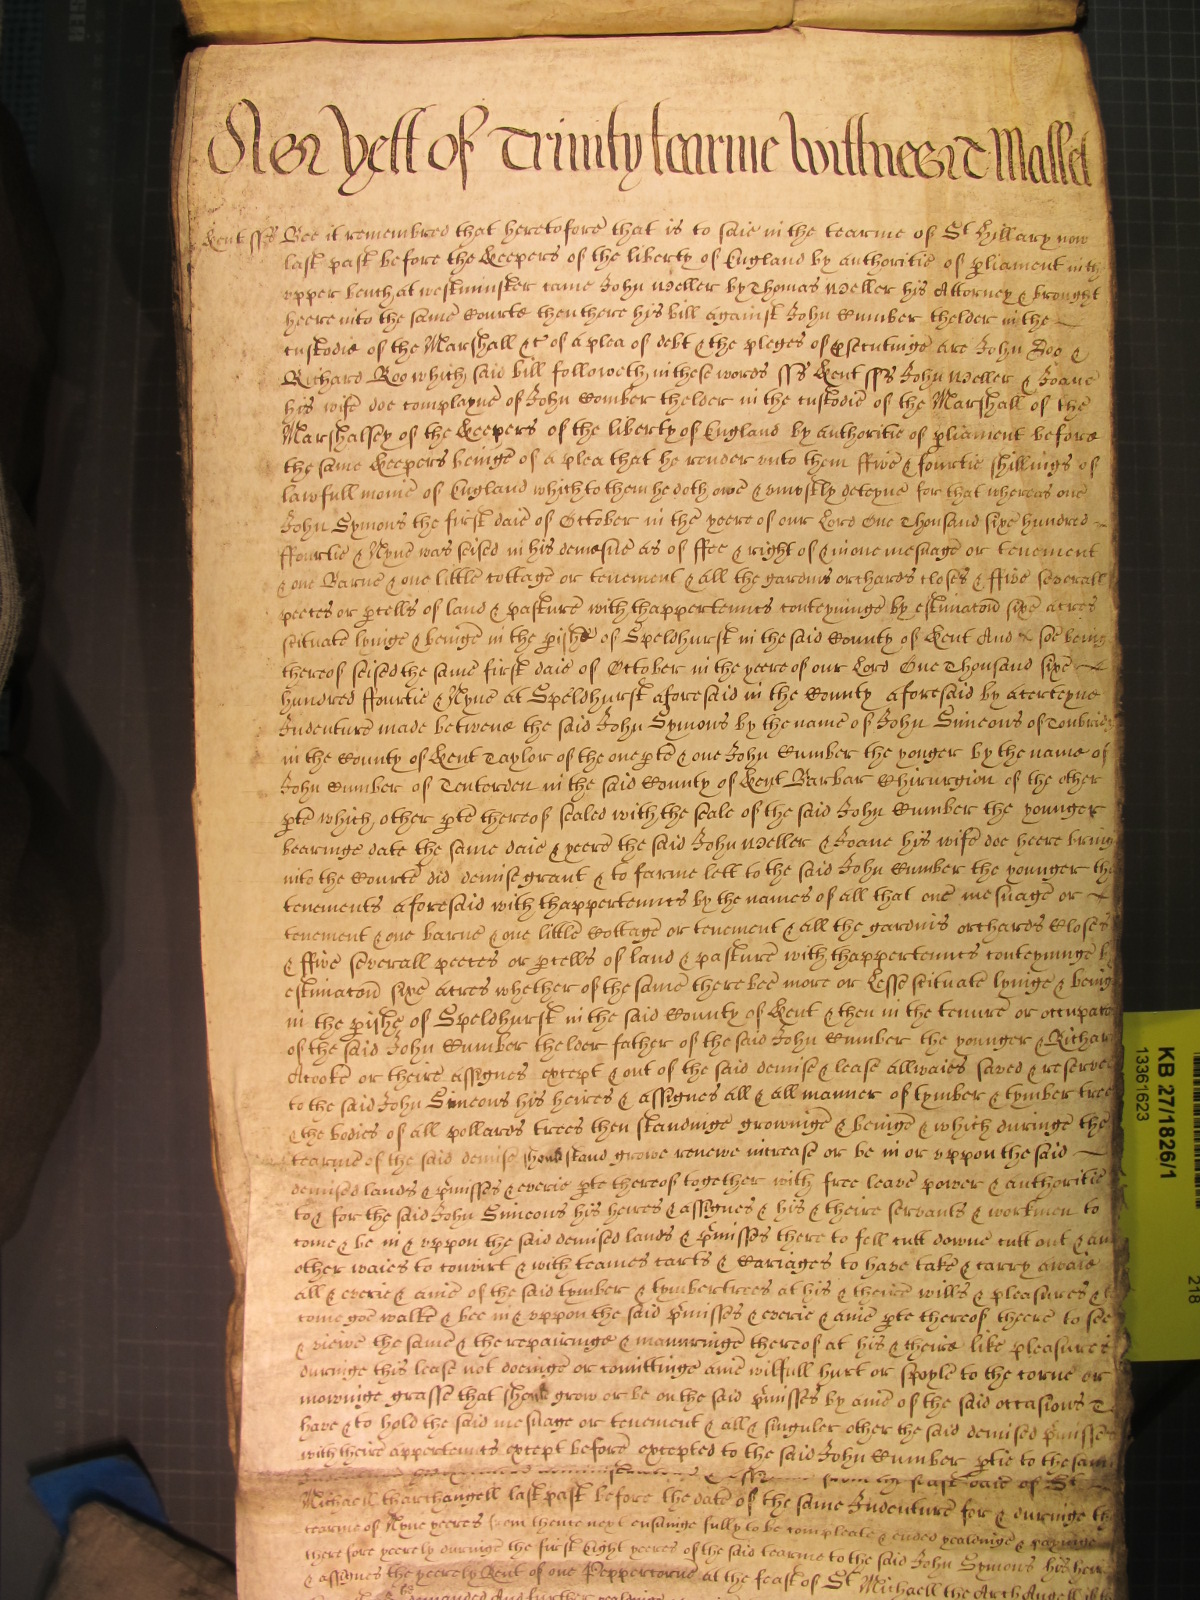 As yett of Trinity tearme Wittnes
Kent sss Bee it remembred that heretofore that is to saie in the tearme of St Hillary now
last past before the Keepers of the liberty of England by authoritie of pliament in the
upper bench at westminster came John Weller by Thomas Weller his Attorney & brought
heere into the same Courte then there his bill against John Cumber thelder in the
custodie of the Marshall &c of a plea of debt & the pleges of psecutinge are John Doo &
Richard Roo which said bill followeth in these words sss Kent sss John Weller & Joane
his wife doe complayne of John Comber thelder in the custodie of the Marshall of the
Marshalsey of the Keepers of the liberty of England by authoritie of pliament before
the same Keepers beinge of a plea that he render unto them ffive & fourtie shillings of
lawfull monie of England which to them he doth owe & uniustly deteyne for that whereas one
John Symons the first daie of October in the yeere of our Lord One Thousand sixe hundred
ffourtie & Nyne was seised in his demesne as of ffee & right of & in one mesuage or tenement
& one Barne & one little cottage or tenement & all the gardins orchards closes & ffive severall
peeces or pcells of land & pasture with thappertennts conteyninge by estimacon sixe acres
scituate lyinge & beinge in the pishe of Speldhurst in the said County of Kent And soe being
thereof seised the same first daie of October in the yeere of our Lord One Thousand sixe
hundred ffourtie & Nyne at Speldhurst aforesaid in the County aforesaid by a certeyne
Indenture made betwene the said John Symons by the name of John Simeons of Tonbridg
in the County of Kent Taylor of the one pte & one John Cumber the yonger by the name of
John Cumber of Tenterden in the said County of Kent Barbar Chirurgion of the other
pte which other pte thereof sealed with the seale of the said John Cumber the younger
bearinge date the same daie & yeere the said John Weller & Joane his wife doe heere bring
into the Courte did demise grant & to farme lett to the said John Cumber the younger the
tenements aforesaid with thappertennts by the names of all that one mesuage or
tenement & one barne & one little Cottage or tenement & all the gardins orchards Closes
& ffive severall peeces or pcells of land & pasture with thappertennts conteyninge b
estimacon sixe acres whether of the same there bee more or Lesse scituate lyinge & being
in the pishe of Speldhurst in the said County of Kent & then in the tenure or occupac
of the said John Cumber thelder father of the said John Cumber the younger & Richar
or theire assignes except & out of the said demise & lease allwaies saved & reserve
to the said John Simeons his heires & assignes all & all manner of tymber & tymber tree
& the bodies of all pollards trees then standinge growinge & beinge & which duringe the
tearme of the said demise should stand growe renewe increase or be in or uppon the said
demised lands & pmisses & everie pte thereof together with free leave power & authoritie
to & for the said John Simeons his heires & assignes & his & theire servants & workmen to
come & be in & uppon the said demised lands & pmisses there to fell cutt downe cutt out & an
other waies to convirt & with teames carts & Cariages to have take & carry awaie
all & everie & anie of the said tymber & tymbertrees at his & theire wills & pleasures & t
come goe walke & bee in & uppon the said pmisses & everie & anie pte thereof theere to see
& viewe the same & the repairinge & manuringe thereof at his & theire like pleasures
duringe this lease not doeinge or comittinge anie wilfull hurt or spoyle to the corne or
mowinge grasse that should grow or be on the said pmisses by anie of the said occasions T
have & to hold the said mesuage or tenement & all & singuler other the said demised pmisses
with theire appertennts except before excepted to the said John Cumber ptie to the sam
feast daie of St
Michaell tharchangell last past before the date of the same Indenture for & duringe th
tearme of Nyne yeeres from thence next ensuinge fully to be compleate & ended yealdinge & payinge
therefore yeerely duringe the first Eight yeeres of the said tearme to the said John Symons his heir
& assignes the yeerely Rent of one Peppercorne at the feast of St Michaell the ArchAngell if th
demanded And further
KB 27/1826/1
13361623
218